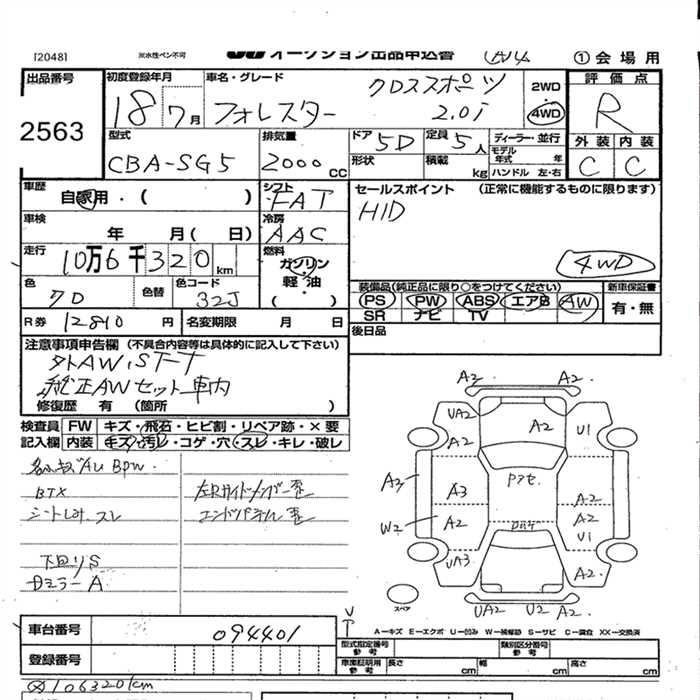 [2048]
※水性ペン不可
オークション出品申込書
①会場用
出品番号 初度登録年月 車名・グレード 評価点
2563
18 7月 フォレスター クロススポーツ 2.0i
2WD
4WD
R
型式 排気量 ドア 5D 定員 5人 ディーラー・並行 外装 内装
CBA-SG5 2000CC 形状 積載 kg モデル年式 年 ハンドル 左・右 C C
車歴 自家用・( ) シフト FAT セールスポイント (正常に機能するものに限ります)
HID
車検 年 月( 日) 冷房 AAC
4WD
走行 10万6千320km 燃料 ガソリン 軽油 ( )
色 7D 色替 色コード 32J
装備品(純正品に限り○をつけてください) 新車保証書
PS PW ABS エアB AW 有・無
SR ナビ TV
R券 12810円 名変期限 月 日 後日品
注意事項申告欄 (不具合内容等は具体的に記入して下さい)
外AW,STT
純正AWセット車内
修復歴 有 (箇所 )
検査員 FW キズ・飛石・ヒビ割・リペア跡・×要
記入欄 内装 キズ・汚レ・コゲ・穴・スレ・キレ・破レ
BTX
左Rサイドメンバー歪
エンドパネル歪
下回りS
Dミラー A
A2 A2
UA2 A2 U1
A2
A3 A3 Pアセ A2
W2 A2 A2
U1
UA3 A2
スペア
UA2 U2 A2
A―キズ E―エクボ U―凹み W―補修跡 S―サビ C―腐食 XX―交換済
車台番号 094401
型式指定番号 参考 類別区分番号 参考
登録番号
車庫証明用 参考 長さ cm 幅 cm 高さ cm
106320km